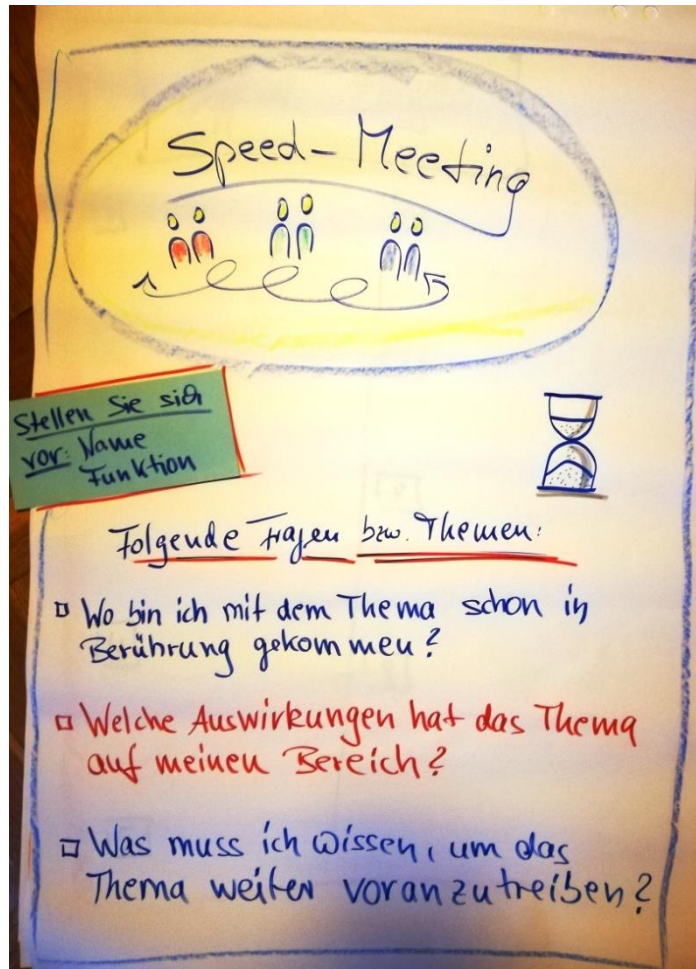 Speed-Meeting
Stellen Sie sich
vor: Name
Funktion
Folgende Fragen bzw. Themen:
Wo bin ich mit dem Thema schon in
Berührung gekommen?
Welche Auswirkungen hat das Thema
auf meinen Bereich?
Was muss ich wissen, um das
Thema weiter voranzutreiben?